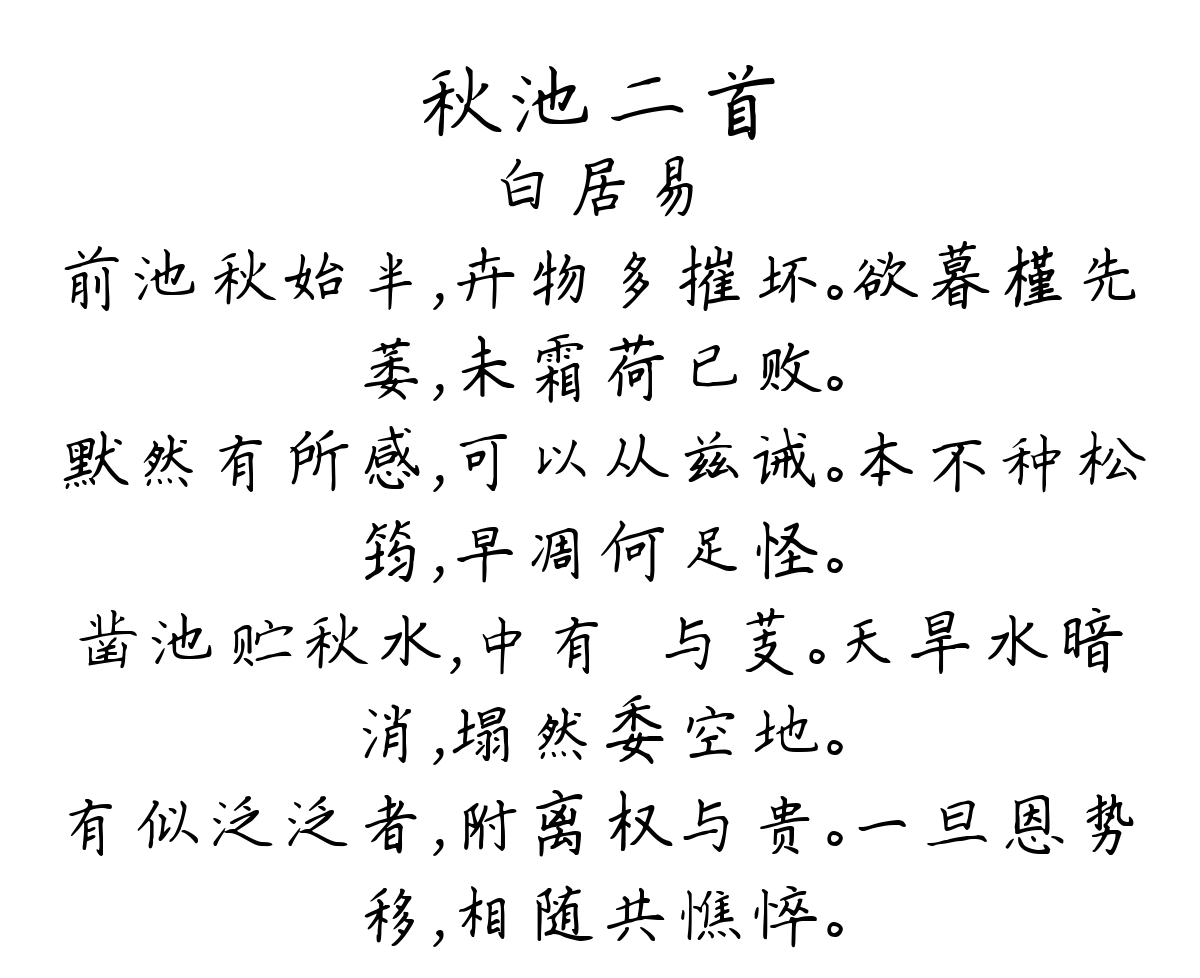 秋池二首
白居易
前池秋始半,卉物多摧坏。欲暮槿先
萎,未霜荷已败。
默然有所感,可以从兹诫。本不种松
筠,早凋何足怪。
凿池贮秋水,中有 与芰。天旱水暗
消,塌然委空地。
有似泛泛者,附离权与贵。一旦恩势
移,相随共憔悴。